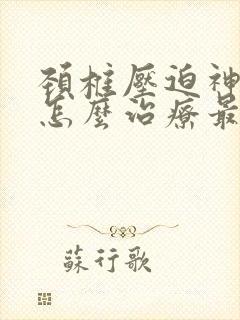 頸椎壓迫神
怎麼治療最
蘇行歌